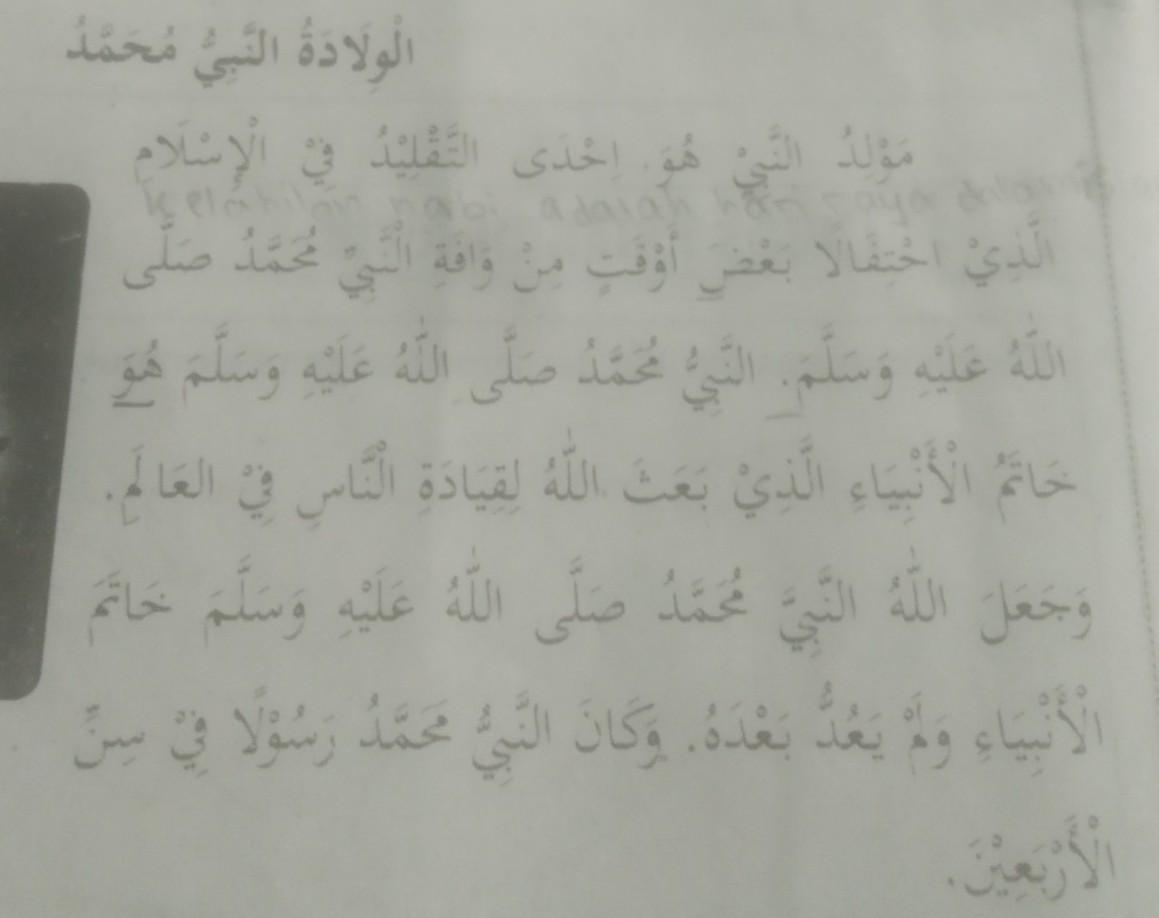 الْوِلَادَةُ النَّبِيُّ مُحَمَّدُ
مَوْلِدُ النَّبِيْ هُوَ اِحْدَى التَّقْلِيْدُ فِيْ الْإِسْلَامِ
Kelahilan nabi adalah hari raya
الَّذِيْ احْتِفَالًا بَعْضَ أَوْقَتٍ مِنْ وَافَةِ النَّبِيِّ مُحَمَّدُ صَلَّى
اللّٰهُ عَلَيْهِ وَسَلَّمَ. النَّبِيُّ مُحَمَّدُ صَلَّى اللّٰهُ عَلَيْهِ وَسَلَّمَ هُوَ
خَاتَمُ الْأَنْبِيَاءِ الَّذِيْ بَعَثَ اللّٰهُ لِقِيَادَةِ النَّاسِ فِيْ العَالَمِ.
وَجَعَلَ اللّٰهُ النَّبِيَّ مُحَمَّدُ صَلَّى اللّٰهُ عَلَيْهِ وَسَلَّمَ خَاتَمَ
الْأَنْبِيَاءِ وَلَمْ يَعُدُّ بَعْدَهُ. وَكَانَ النَّبِيُّ مَحَمَّدُ رَسُوْلًا فِيْ سِنِّ
الْأَرْبَعِيْنَ.